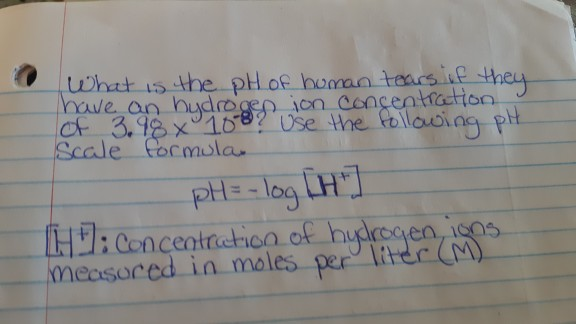 What is the pH of human tears if they
have an hydrogen ion concentration
of 3.98 x 10⁻⁸? Use the following pH
Scale formula.
pH = -log [H⁺]
[H⁺]: Concentration of hydrogen ions
measured in moles per liter (M)